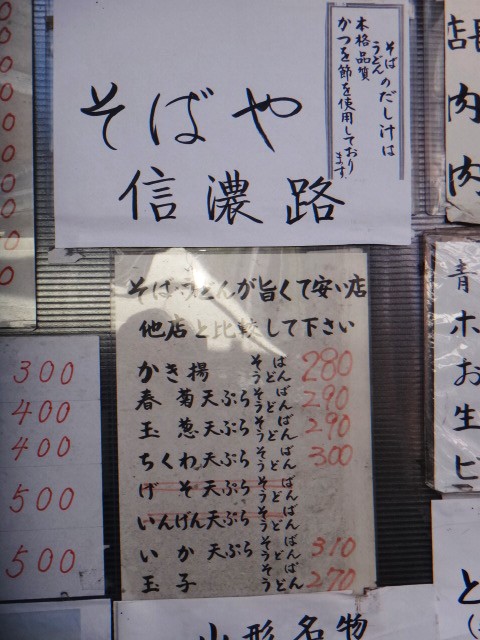 そばや
信濃路
そば
うどん のだし汁は
本格品質
かつを節を使用しており
ます。
そばうどんが旨くて安い店
他店と比較して下さい
かき揚 そば うどん 280
春菊天ぷら そば うどん 290
玉葱天ぷら そば うどん 290
ちくわ天ぷら そば うどん 300
げそ天ぷら そば うどん
いんげん天ぷら そば うどん
いか天ぷら そば うどん 310
玉子 そば うどん 270
300
400
400
500
500
肉
肉
青
ホ
お
生
ビ
と
山形名物